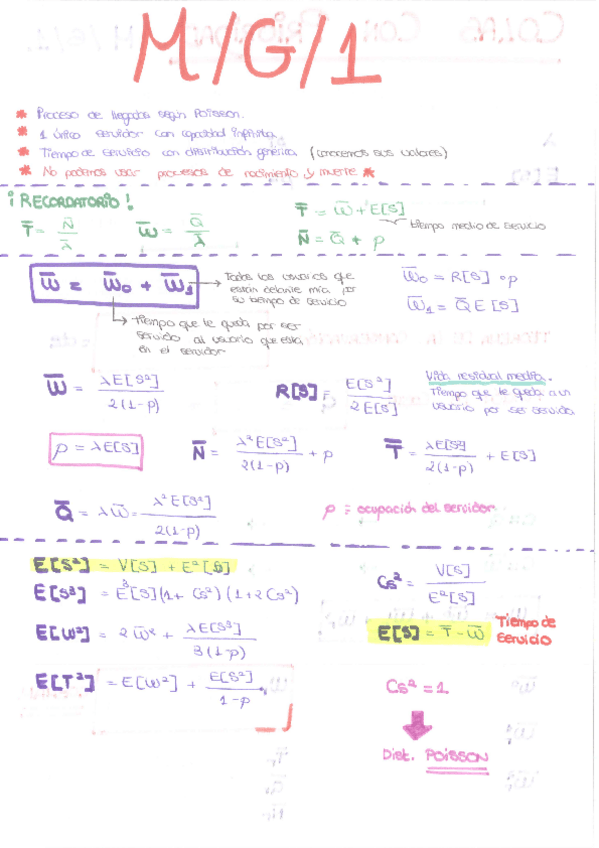 M/G/1
* Proceso de llegadas según Poisson.
* 1 único servidor con capacidad infinita
* Tiempo de servicio con distribución genérica (conocemos sus valores)
* No podemos usar procesos de nacimiento y muerte *
¡RECORDATORIO!
T̅ = N̅/λ   W̅ = Q̅/λ   T̅ = W̅ + E[S]
tiempo medio de servicio
N̅ = Q̅ + ρ
W̅ = W̅₀ + W̅₁ → Todos los usuarios que están delante mía por su tiempo de servicio
↳ Tiempo que le queda por ser servido al usuario que está en el servidor
W̅₀ = R[S] · ρ
W̅₁ = Q̅ E[S]
W̅ = λE[S²] / 2(1-ρ)   R[S] = E[S²] / 2E[S]
Vida residual media.
Tiempo que le queda a un usuario por ser servido
ρ = λE[S]   N̅ = λ²E[S²] / 2(1-ρ) + ρ   T̅ = λE[S²] / 2(1-ρ) + E[S]
Q̅ = λW̅ = λ²E[S²] / 2(1-ρ)   ρ ≡ ocupación del servidor
E[S²] = V[S] + E²[S]
E[S³] = E³[S](1 + Cs²)(1 + 2Cs²)
E[W²] = 2W̅² + λE[S³] / 3(1-ρ)
E[T²] = E[W²] + E[S²] / 1-ρ
Cs² = V[S] / E²[S]
E[S] = T̅ - W̅ Tiempo de Servicio
Cs² = 1
Dist. POISSON